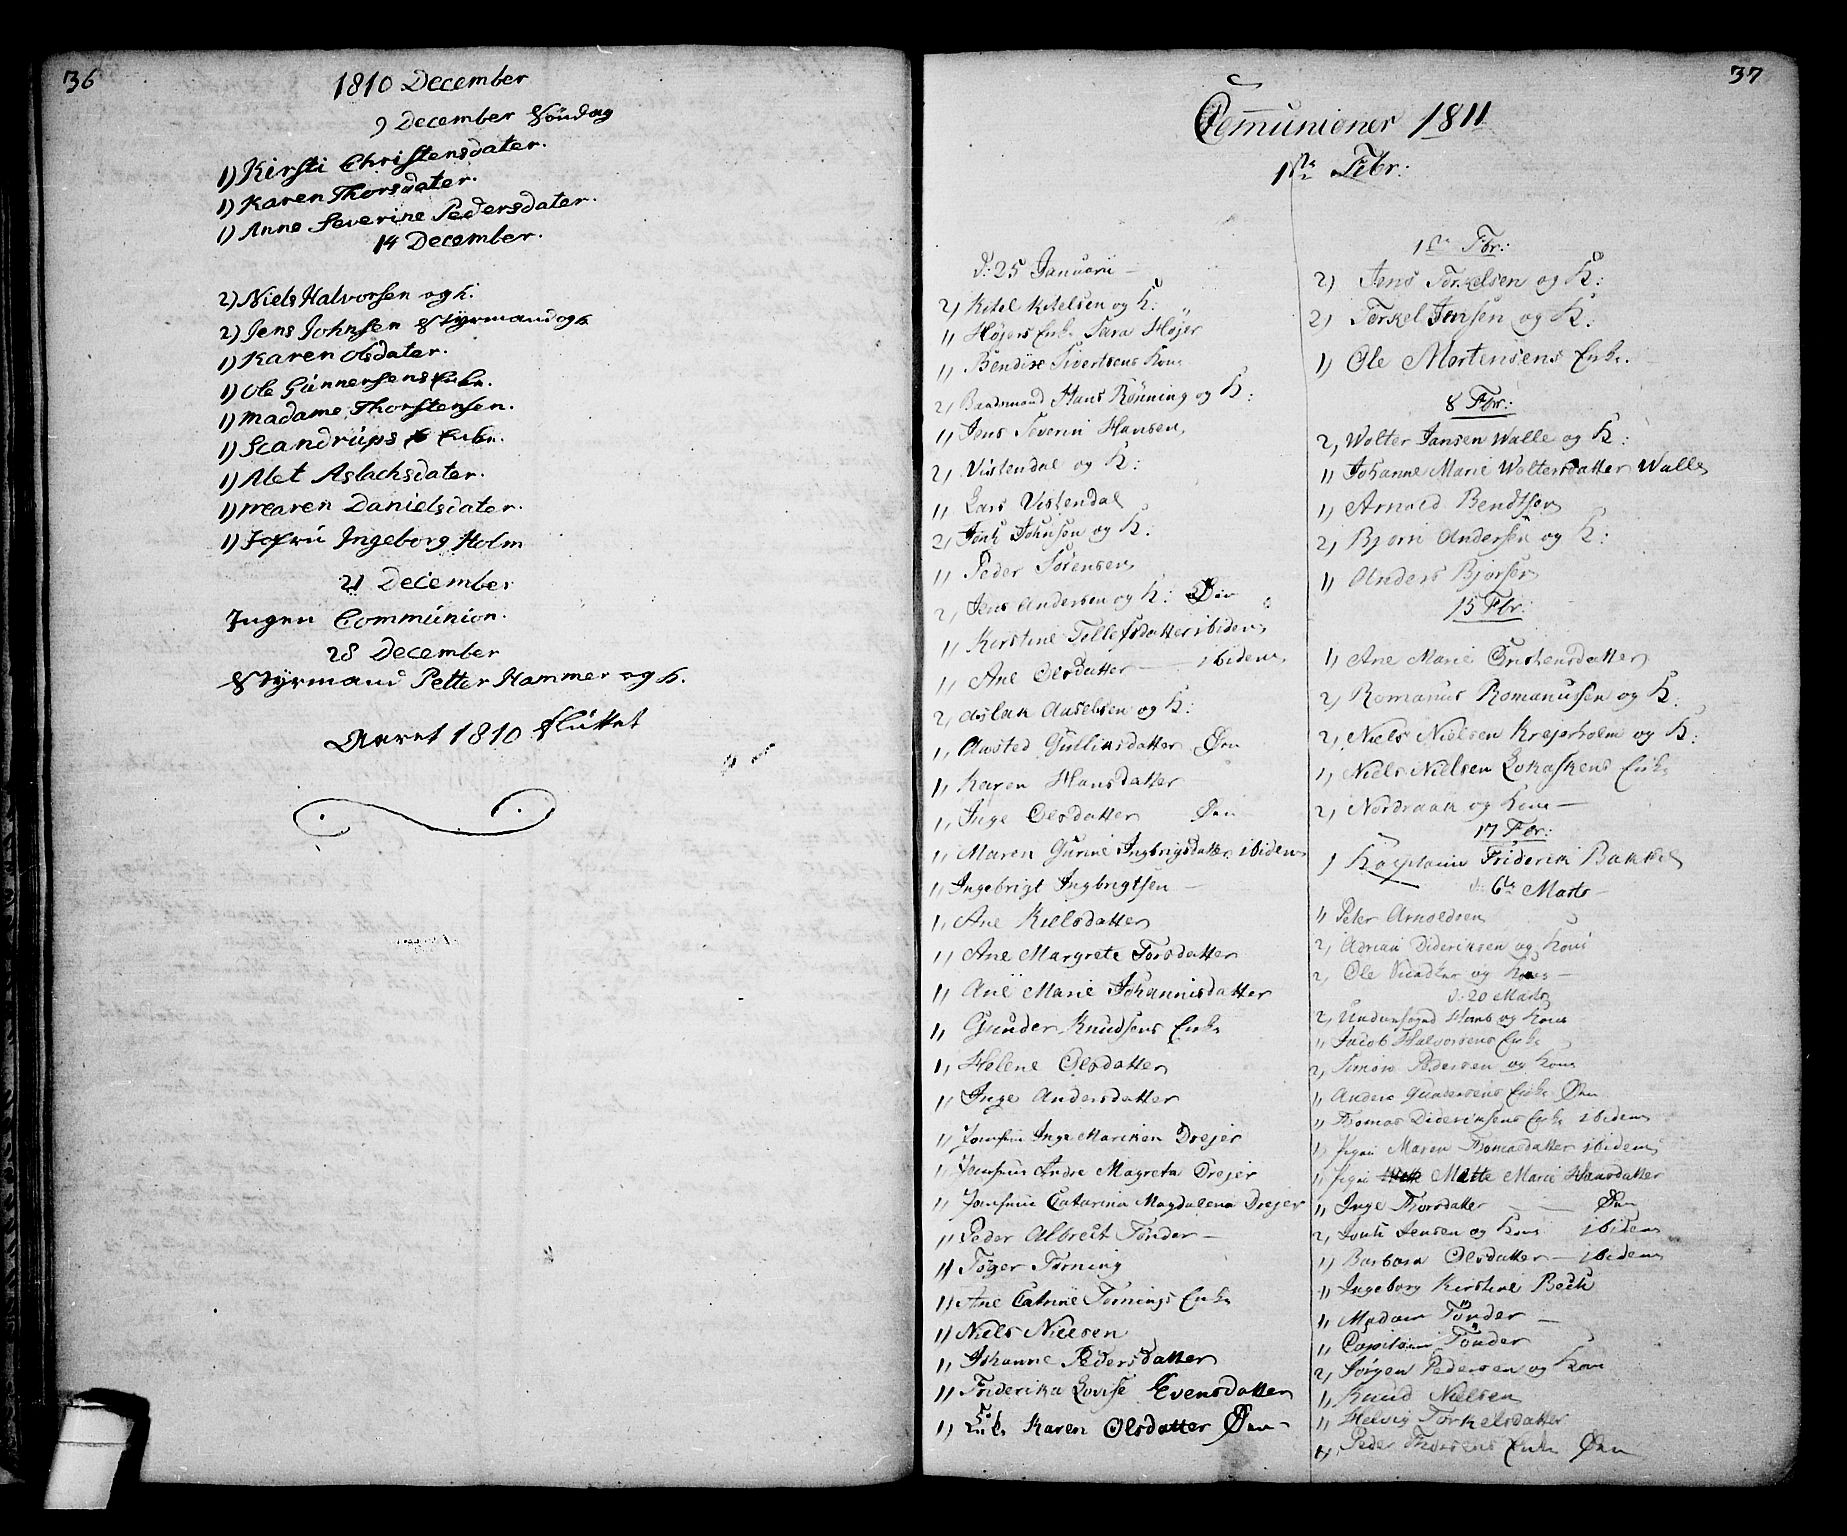 36
1810 December
9 December Søndag
1) Kirsti Christensdater.
1) Karen Thorsdater.
1) Anne Severine Pedersdater.
14 December.
2) Niels Halvorsen og k.
2) Jens Johnsen Styrmand og k
1) Karen Olsdater.
1) Ole Günnersens Enke.
1) Madame Thorstensen.
1) Scandrüps Enke.
1) Alet Aslachsdater.
1) Maren Danielsdater.
1) Jofrü Ingeborg Holm
21 December
Ingen Commünion.
28 December
Styrmand Petter Hammer og k.
Aaret 1810 sluttet
37
Communioner 1811
1ste Febr:
d: 25 Januarii
2) Ketel Ketelsen og K:
1) Højers Enke Sara Højer
1) Bendixe Sivertsens Kone
2) Baadsmand Hans Rønning og K:
1) Jens Severin Hansen
2) Vistendal og K:
1) Lars Vistendal
2) Jonk Johnsen og K.
1) Peder Sørensen
2) Jens Andersen og K: Øen
1) Kirstine Tellefsdatter ibidem
1) Ane Olsdatter — ibidem
2) Aslak Auselsen og K:
1) Aasted Gulliksdatter Øen
1) Karen Hansdatter
1) Inge Olsdatter Øen
1) Maren Gurine Ingbrigsdatter ibidem
1) Ingebrigt Ingbrigtsen —
1) Ane Kielsdatter
1) Ane Margrete Torsdatter
1) Ane Marie Johannisdatter
1) Gunder Knudsens Enke
1) Helene Olsdatter
1) Inge Andersdatter
1) Jomfrue Inge Mariken Drejer
1) Jomfrue Andre Magreta Drejer
1) Jomfrue Catarina Magdalena Drejer
1) Peder Albreit Tønder —
1) Tøger Tørning
1) Ane Catrine Tørnings Enke
1) Niels Nielsen
1) Johanne Pedersdatter
1) Friderika Lovise Evensdatter
1) Karen Olsdatter Øen
1ste Fbr:
2) Jens Torkelsen og K:
2) Torkel Jensen og K:
1) Ole Mortensens Enke.
8 Fbr:
2) Wolter Jansen Walle og K:
1) Johanne Marie Woltersdatter Walle
1) Arnold Bendtsen
2) Bjørn Andersen og K:
1) Anders Bjorsen
15 Fbr:
1) Ane Marie Cristensdatter
2) Romanus Romanussen og K.
2) Niels Nielsen Krejerholm og K:
1) Niels Nielsen Lokaskens Enke
2) Nordraak og Kone —
17 Fbr:
1 Kaptain Friderik Bakke
d: 6te Marts —
1) Peter Arnoldsen
2) Adrian Dideriksen og Kone
2) Ole og Kone —
d: 20 Marts
2) Hans og Kone
1) Jacob Halvorsens Enke
2) Simon Pedersen og Kone
1) Anders Gundersens Enke Øen
1) Thomas Dideriksens Enke ibidem
1) Pigen Maren Thomasdatter ibidem
1) Pigen Mette Marie Hansdatter
1) Inge Thorsdatter — — Øen
2) Jonk Jensen og Kone ibidem
1) Barbara Olsdatter — ibidem
1) Ingeborg Kirstine Beck
1) Madam Tønder —
1) Capitain Tønder
2) Jørgen Pedersen og Kone
1) Knud Nielsen
1) Helvig Torkelsdatter
1) Peder Enke Øen